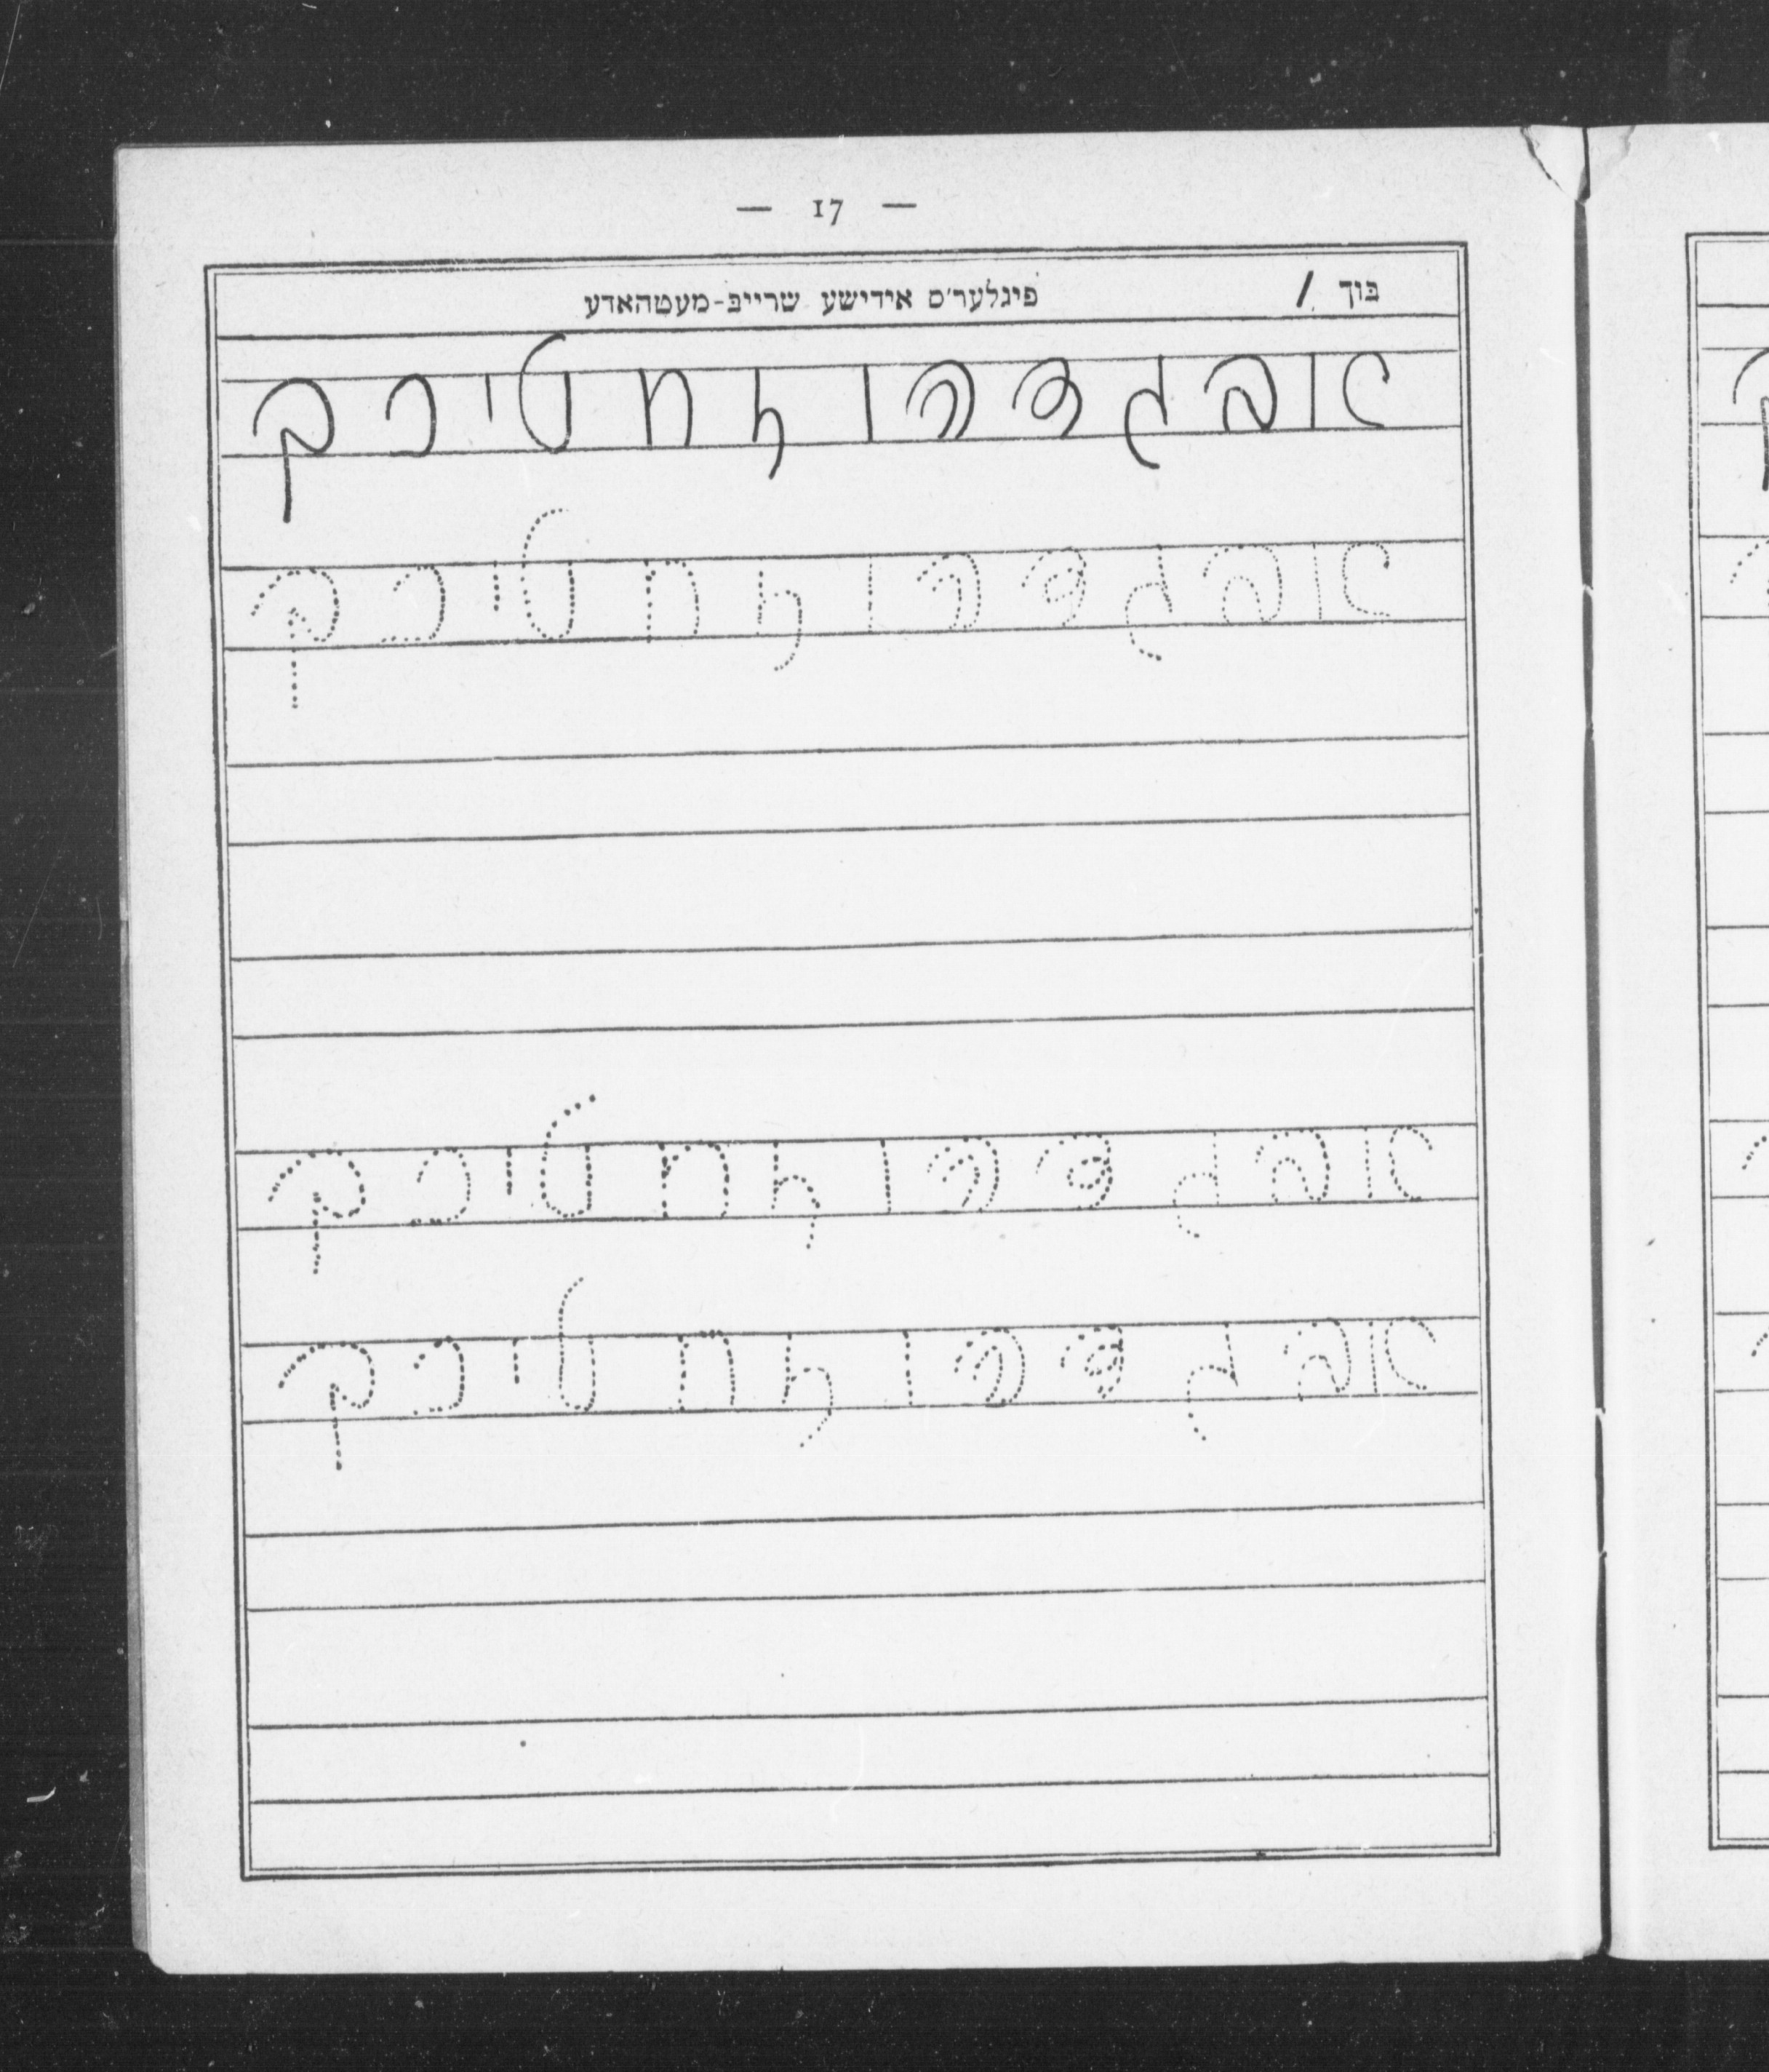 — 17 —
בוך 1 פיגלער׳ס אידישע שרייב-מעטהאדע
א ב ג ד ה ו ז ח ט י כ ך
א ב ג ד ה ו ז ח ט י כ ך
א ב ג ד ה ו ז ח ט י כ ך
א ב ג ד ה ו ז ח ט י כ ך